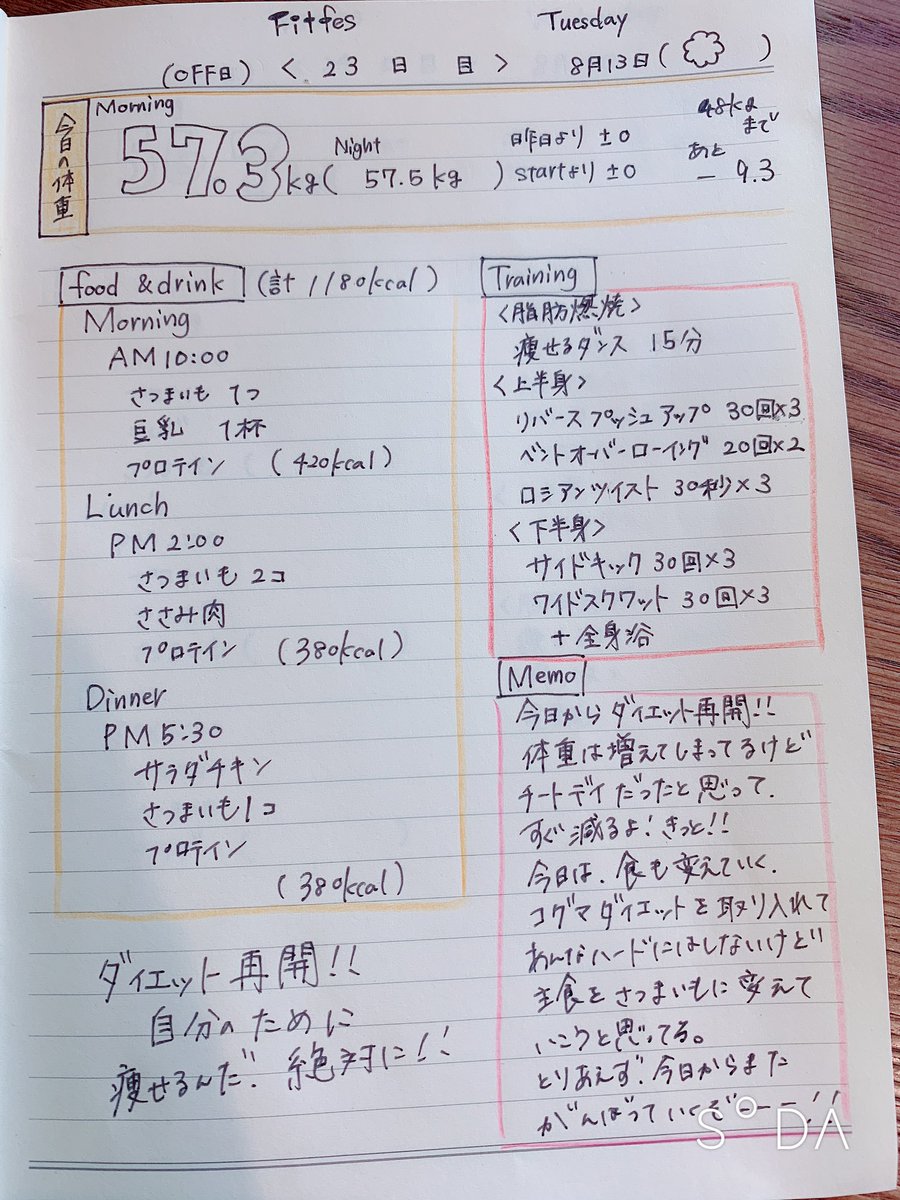 Fitfes Tuesday
(OFF日) < 23日目 > 8月13日( )
今日の体重
Morning
57.3kg
Night
( 57.5kg )
昨日より ±0
startより ±0
48kgまで
あと
- 9.3
food & drink (計 1180kcal)
Morning
AM 10:00
さつまいも 1つ
豆乳 1杯
プロテイン (420kcal)
Lunch
PM 2:00
さつまいも 2コ
ささみ肉
プロテイン (380kcal)
Dinner
PM 5:30
サラダチキン
さつまいも1コ
プロテイン
(380kcal)
ダイエット再開!!
自分のために
痩せるんだ!絶対に!!
Training
<脂肪燃焼>
痩せるダンス 15分
<上半身>
リバースプッシュアップ 30回×3
ベントオーバーローイング 20回×2
ロシアンツイスト 30秒×3
<下半身>
サイドキック 30回×3
ワイドスクワット 30回×3
+全身浴
Memo
今日からダイエット再開!!
体重は増えてしまってるけど
チートデイだったと思って、
すぐ減るよ!きっと!!
今日は、食も変えていく、
コグマダイエットを取り入れて
あんなハードにはしないけど
主食をさつまいもに変えて
いこうと思ってる。
とりあえず、今日からまた
がんばっていくぞーー!!
SODA